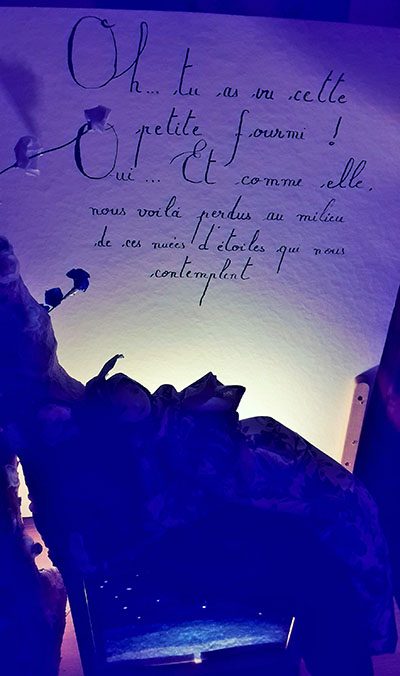 Oh... tu as vu cette
petite fourmi !
Oui... Et comme elle,
nous voilà perdus au milieu
de ces nuées d'étoiles qui nous
contemplent